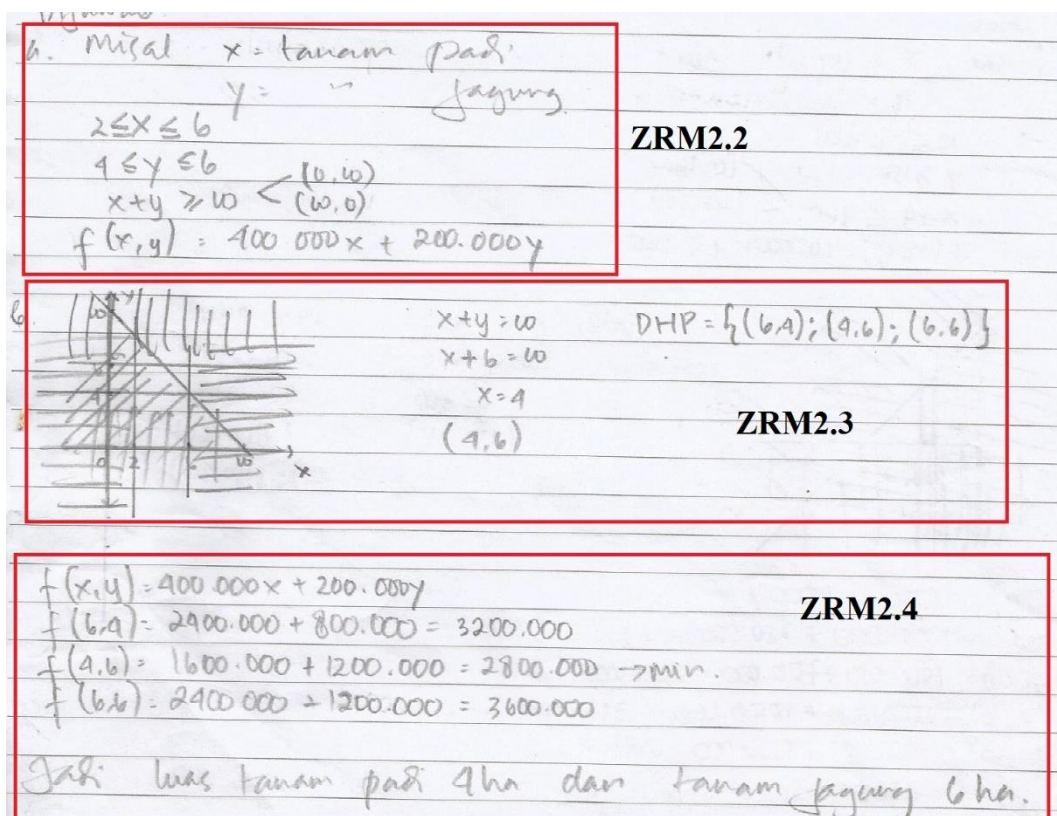 a. Misal x = tanam padi
y = ~ jagung
2 ≤ x ≤ 6
4 ≤ y ≤ 6
x+y ≥ 10 < (0,10)
(10,0)
f(x,y) = 400 000x + 200.000y
ZRM2.2
b.
10 y
6
4
0 2 6 10 x
x+y = 10
x+6 = 10
x = 4
(4,6)
DHP = {(6,4); (4,6); (6,6)}
ZRM2.3
f(x,y) = 400 000x + 200.000y
f(6,4) = 2400.000 + 800.000 = 3200.000
f(4,6) = 1600.000 + 1200.000 = 2800.000 → min
f(6,6) = 2400 000 + 1200.000 = 3600.000
ZRM2.4
Jadi luas tanam padi 4 ha dan tanam jagung 6 ha.